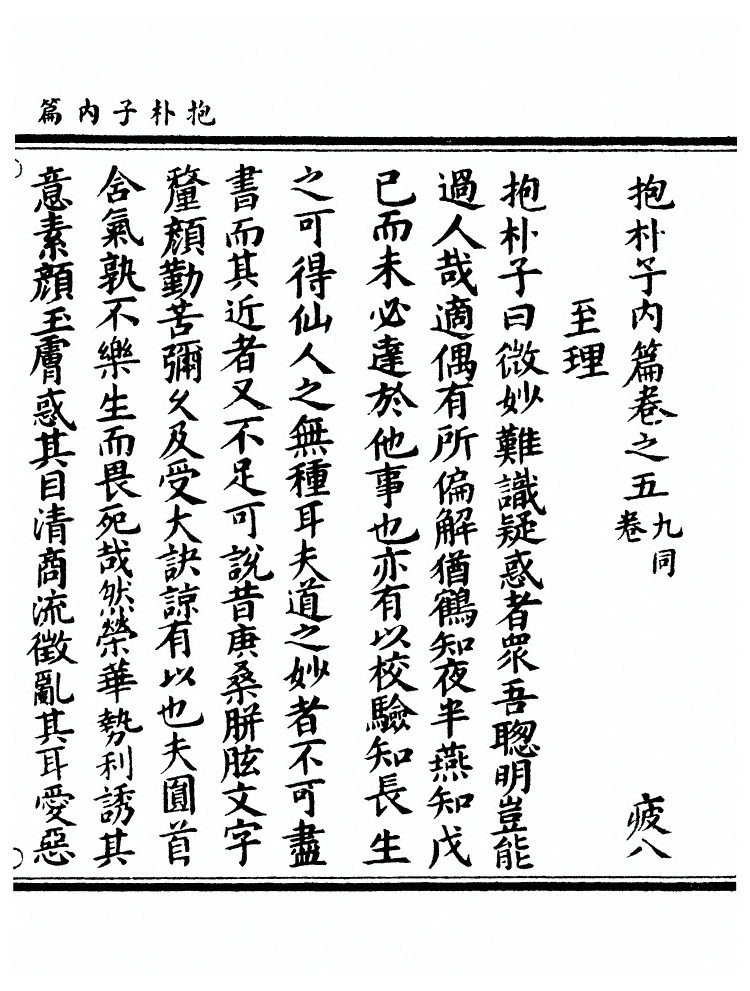 抱朴子内篇
抱朴子内篇卷之五 九同卷 疲八
至理
抱朴子曰微妙難識疑惑者衆吾聰明豈能
過人哉適偶有所偏解猶鶴知夜半燕知戊
已而未必達於他事也亦有以校驗知長生
之可得仙人之無種耳夫道之妙者不可盡
書而其近者又不足可說昔庚桑胼胝文字
釐顏勤苦彌久及受大訣諒有以也夫圓首
含氣孰不樂生而畏死哉然榮華勢利誘其
意素顏玉膚惑其目清商流徵亂其耳愛惡